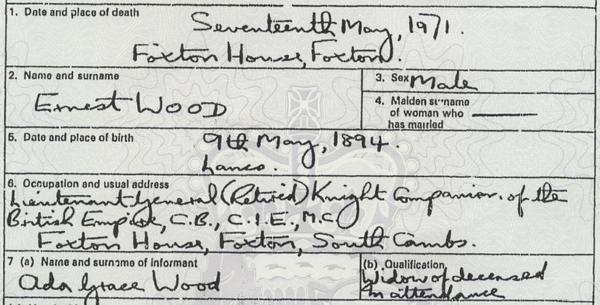 1. Date and place of death
Seventeenth May, 1971.
Foxton House, Foxton.
2. Name and surname
Ernest WOOD
3. Sex Male
4. Maiden surname
of woman who
has married
5. Date and place of birth
9th May, 1894.
Lancs.
6. Occupation and usual address
Lieutenant General (Retired) Knight Companion of the
British Empire, C.B., C.I.E., M.C.
Foxton House, Foxton, South Cambs.
7 (a) Name and surname of informant
Ada Grace Wood
(b) Qualification
Widow of deceased
In attendance